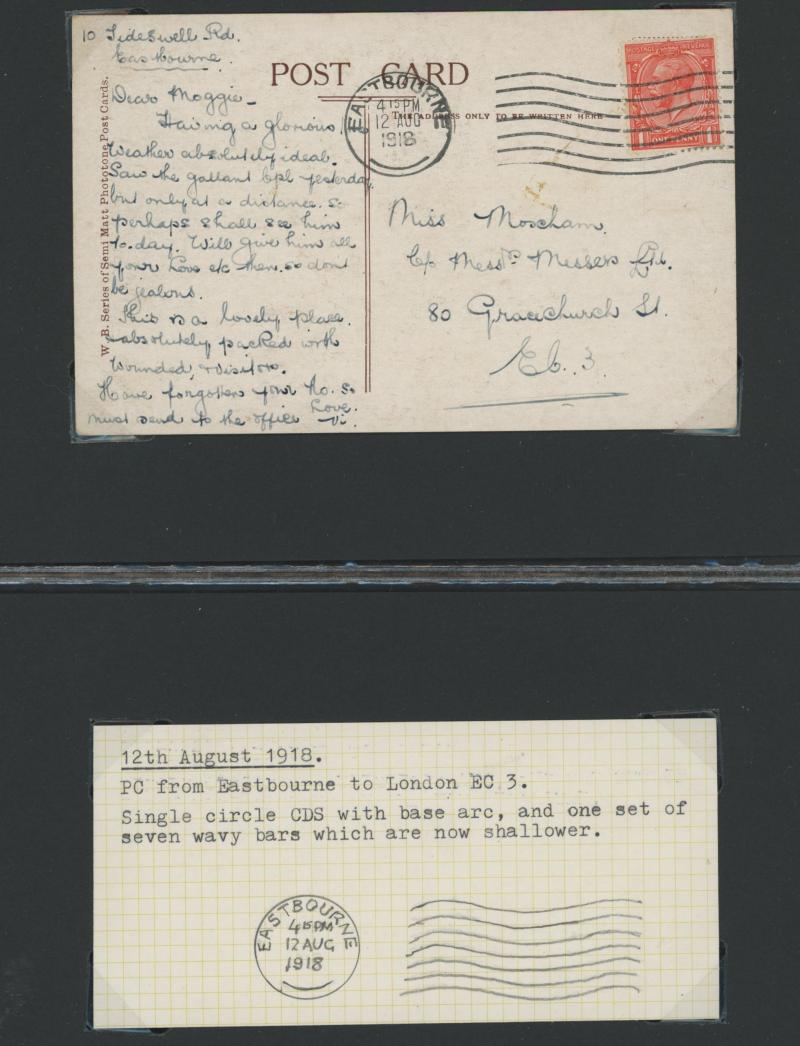 10 Tideswell Rd.
Eastbourne.
POST CARD
THE ADDRESS ONLY TO BE WRITTEN HERE
EASTBOURNE
4 15 PM
12 AUG
1918
POSTAGE REVENUE
ONE PENNY
W. B. Series of Semi Matt Phototone Post Cards.
Dear Maggie -
Having a glorious
Weather absolutely ideal.
Saw the gallant Cpl yesterday
but only at a distance. so
perhaps shall see him
to-day. Will give him all
your love etc then. so don't
be jealous.
This is a lovely place.
absolutely packed with
Wounded, & Visitors.
Have forgotten your No. so
must send to the office
Love.
Vi.
Miss Moscham.
C/o Messrs Messers Ltd.
80 Gracechurch St.
E.C. 3.
12th August 1918.
PC from Eastbourne to London EC 3.
Single circle CDS with base arc, and one set of
seven wavy bars which are now shallower.
EASTBOURNE
4 15 PM
12 AUG
1918